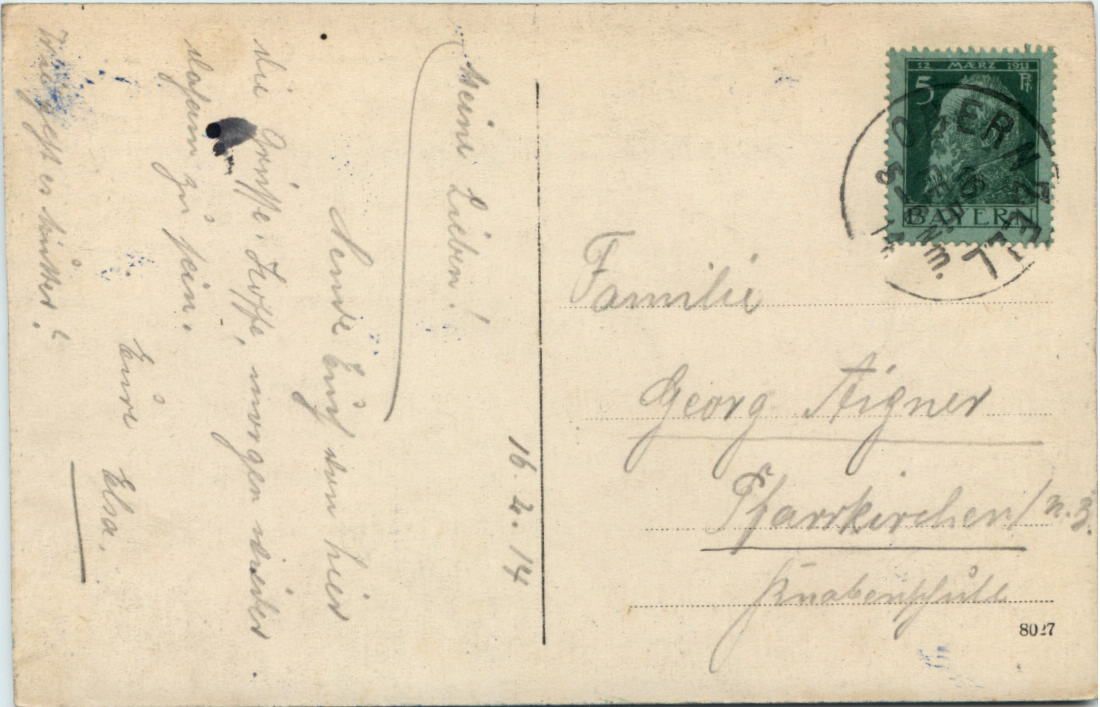 16.2.14
Meine Lieben!
Sende Euch von hier
die Grüsse. Hoffe, morgen wieder
daheim zu sein.
Eure Elsa.
Wie geht es Mutter?
12 MÆRZ 1911
5 Pf
BAYERN
OBERNZELL
Familie
Georg Aigner
Pfarrkirchen/N.B.
Knabenschule
8027